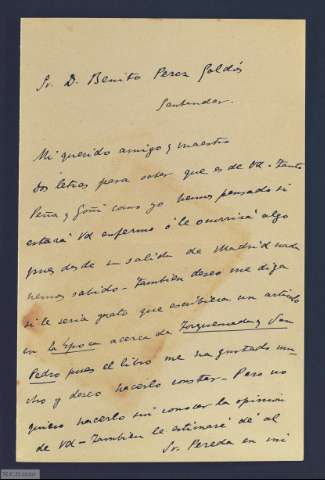 Sr. D. Benito Perez Galdós
Santander.
Mi querido amigo y maestro
Dos letras para saber que es de Vd. Tanto
Peña y Goñi como yo hemos pensado si
estará Vd enfermo ó le ocurrirá algo
pues desde su salida de Madrid nada
hemos sabido - Tambien deseo me diga
si le seria grato que escribiera un artículo
en la Epoca acerca de Torquemada y San
Pedro pues el libro me ha gustado mu-
cho y deseo hacerlo constar - Pero no
quiero hacerlo sin conocer la opinión
de Vd - Tambien le estimaré dé al
Sr. Pereda en mi